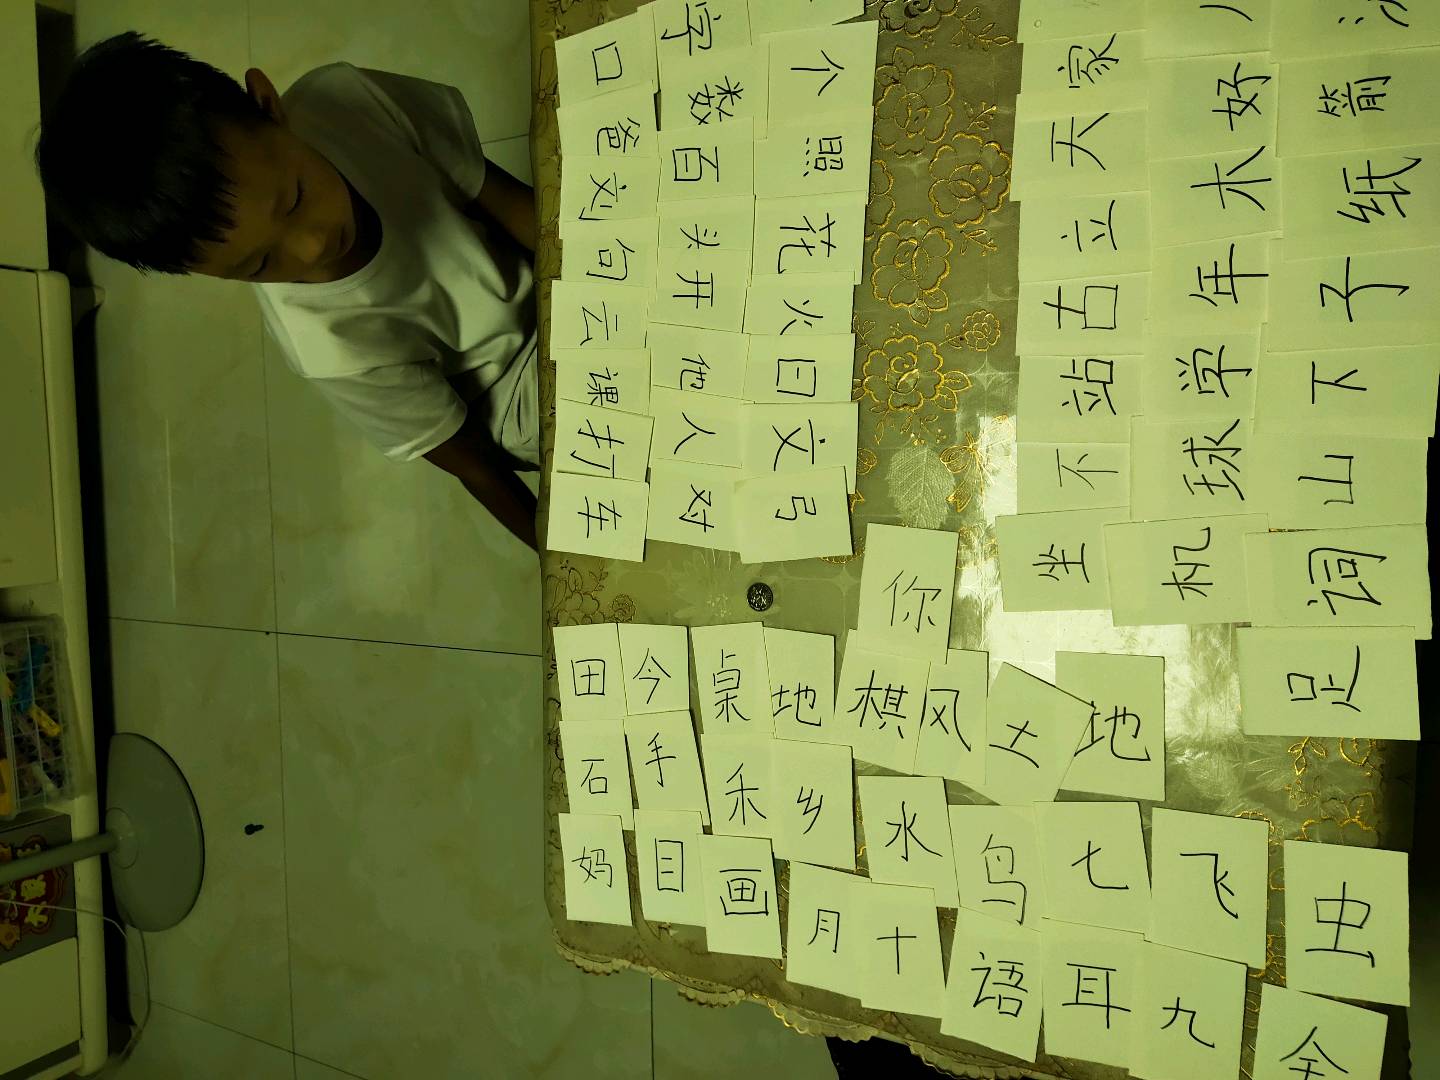 口 字 个
爸 数 照
刘 百 花
句 头 火
云 开 日
课 他 文
打 人 弓
车 对
家
天 好 箭
立 木 纸
古 年 子
站 学 下
不 球 山
坐 机 词
足
你
田 今 桌 地 棋 风 土 地
石 手 禾 乡 水 鸟 七 飞 虫
妈 目 画 月 十 语 耳 九 全